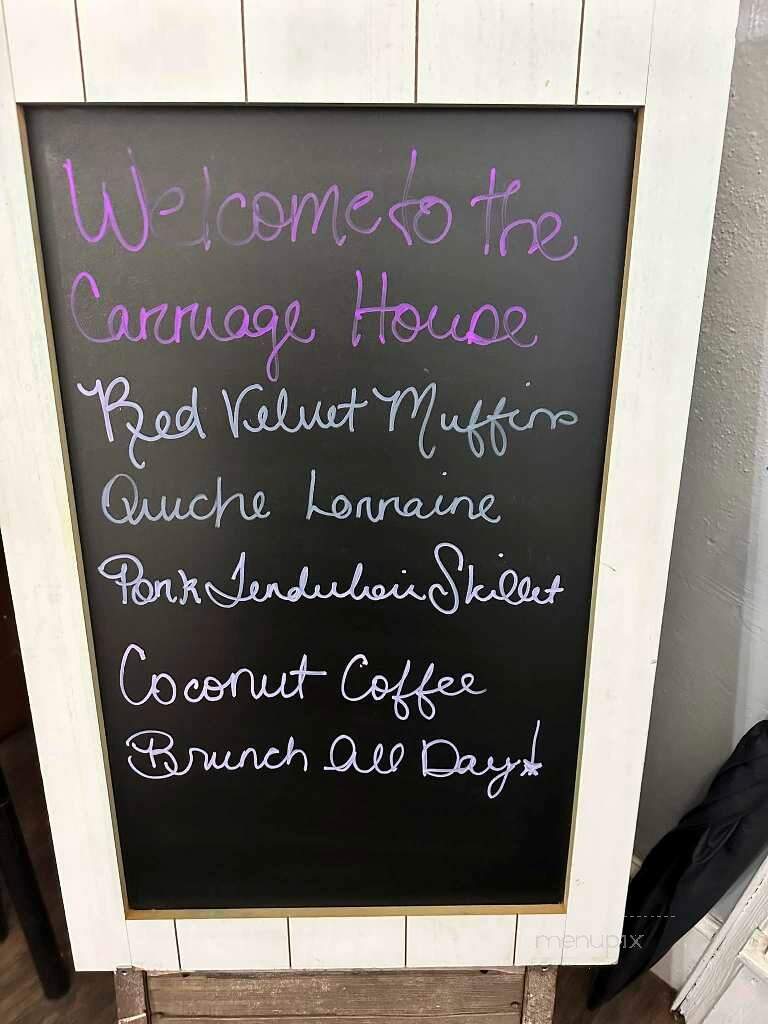 Welcome to the
Carriage House
Red Velvet Muffins
Quiche Lorraine
Pork Tenderloin Skillet
Coconut Coffee
Brunch All Day!
menupix